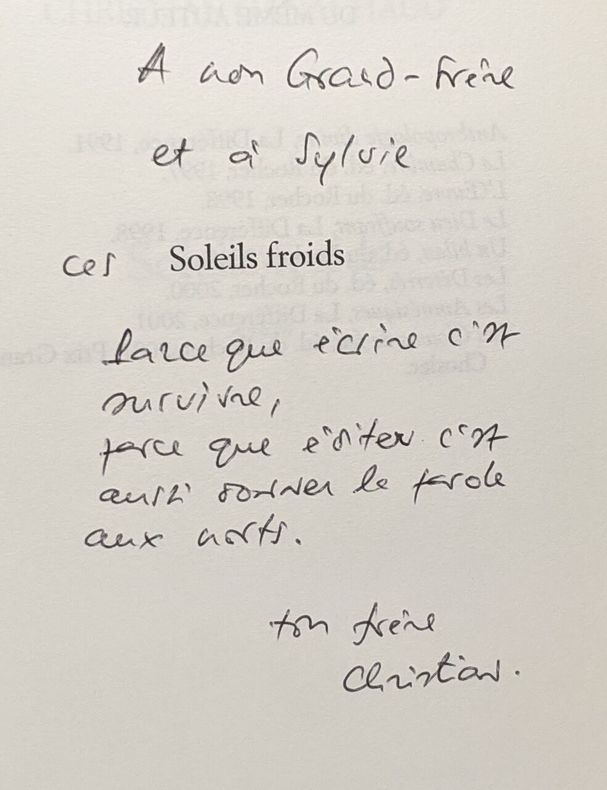 A mon Grand-frère
et à Sylvie
ces Soleils froids
Parce que écrire c'est
survivre,
parce que éditer c'est
aussi donner la parole
aux morts.
ton frère
Christian.